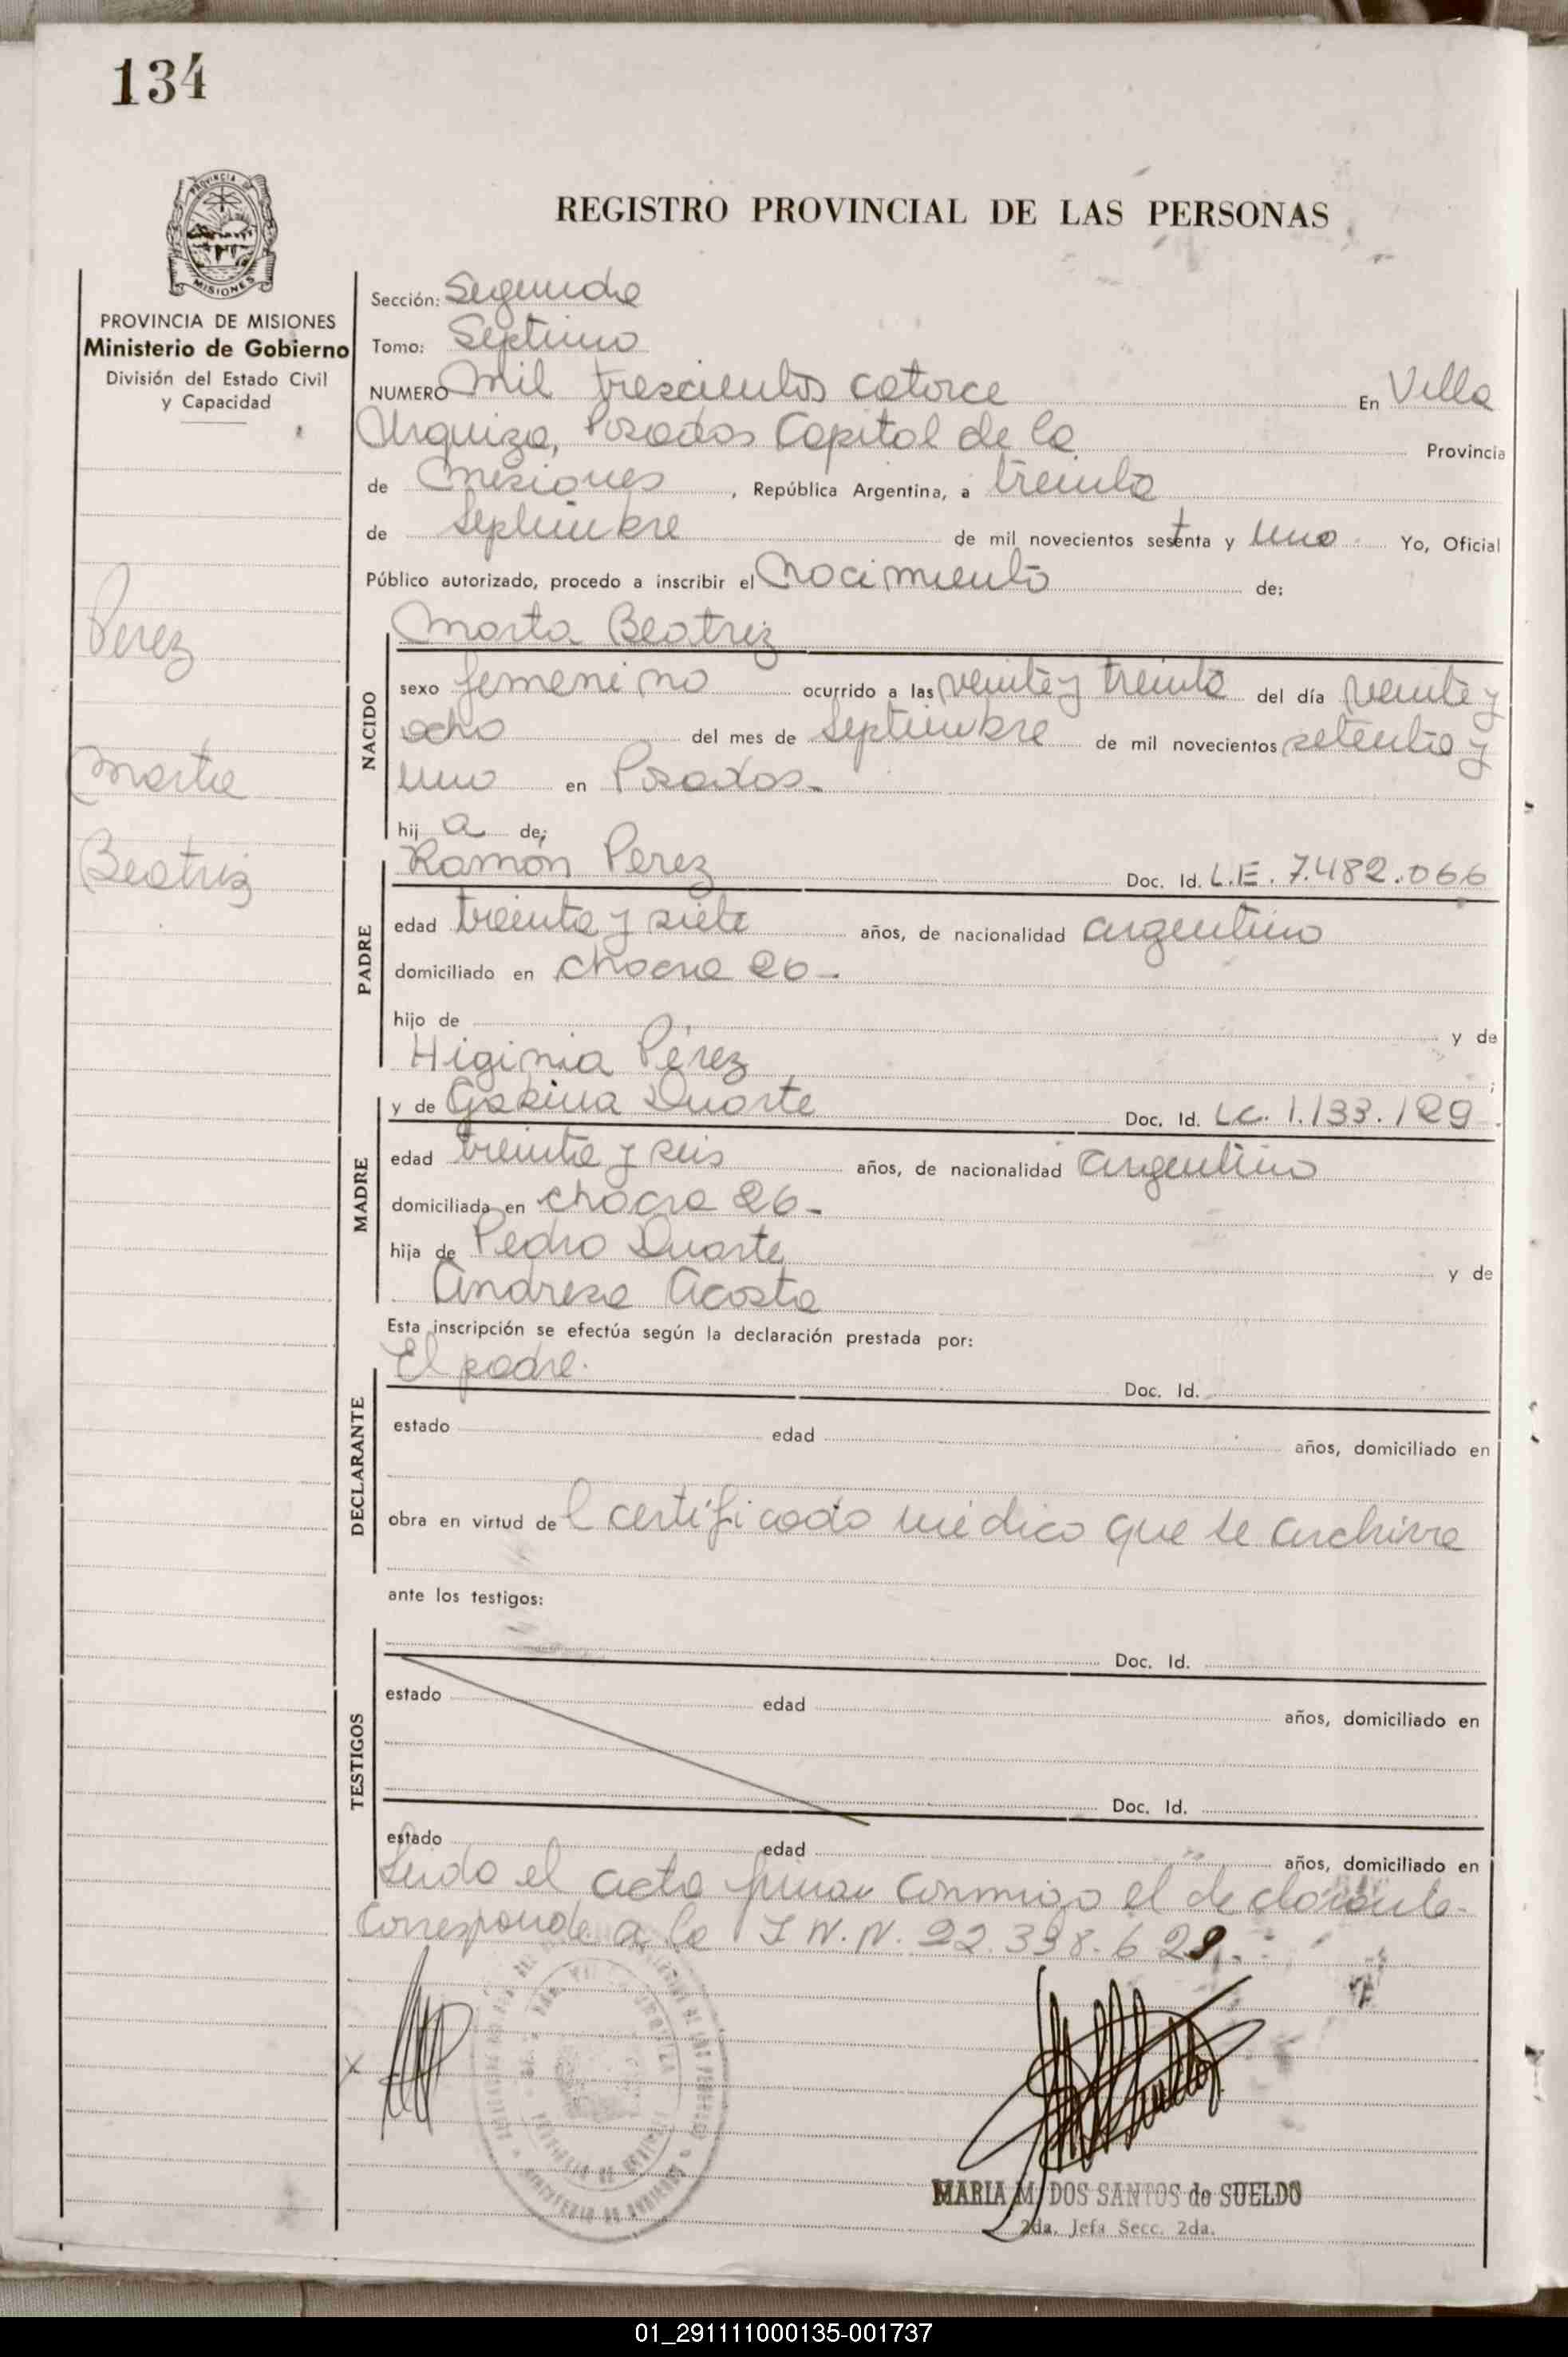 134
PROVINCIA DE MISIONES
Ministerio de Gobierno
División del Estado Civil
y Capacidad
Perez
Marta
Beatriz
REGISTRO PROVINCIAL DE LAS PERSONAS
Sección: Segunda
Tomo: Septimo
NUMERO Mil trescientos catorce En Villa
Urquiza, Posadas Capital de la Provincia
de Misiones, República Argentina, a treinta
de Septiembre de mil novecientos sesenta y uno Yo, Oficial
Público autorizado, procedo a inscribir el Nacimiento de:
NACIDO
Marta Beatriz
sexo femenino ocurrido a las veinte y treinta del día veinte y
ocho del mes de Septiembre de mil novecientos setenta y
uno en Posadas.-
hij a de;
PADRE
Ramón Perez Doc. Id. L.E. 7.482.066
edad treinta y siete años, de nacionalidad argentino
domiciliado en chacra 26-
hijo de y de
Higinia Pérez
MADRE
y de Gabina Duarte Doc. Id. L.C. 1.133.129
edad treinta y seis años, de nacionalidad argentino
domiciliada en chacra 26-
hija de Pedro Duarte y de
Andresa Acosta
Esta inscripción se efectúa según la declaración prestada por:
DECLARANTE
El padre. Doc. Id.
estado edad años, domiciliado en
obra en virtud de l certificado médico que se archiva
ante los testigos:
TESTIGOS
Doc. Id.
estado edad años, domiciliado en
Doc. Id.
estado edad años, domiciliado en
Leido el acta firma conmigo el declarante-
Corresponde a la I.N.N. 22.338.629.
MARIA M. DOS SANTOS de SUELDO
2da. Jefa Secc. 2da.
01_291111000135-001737